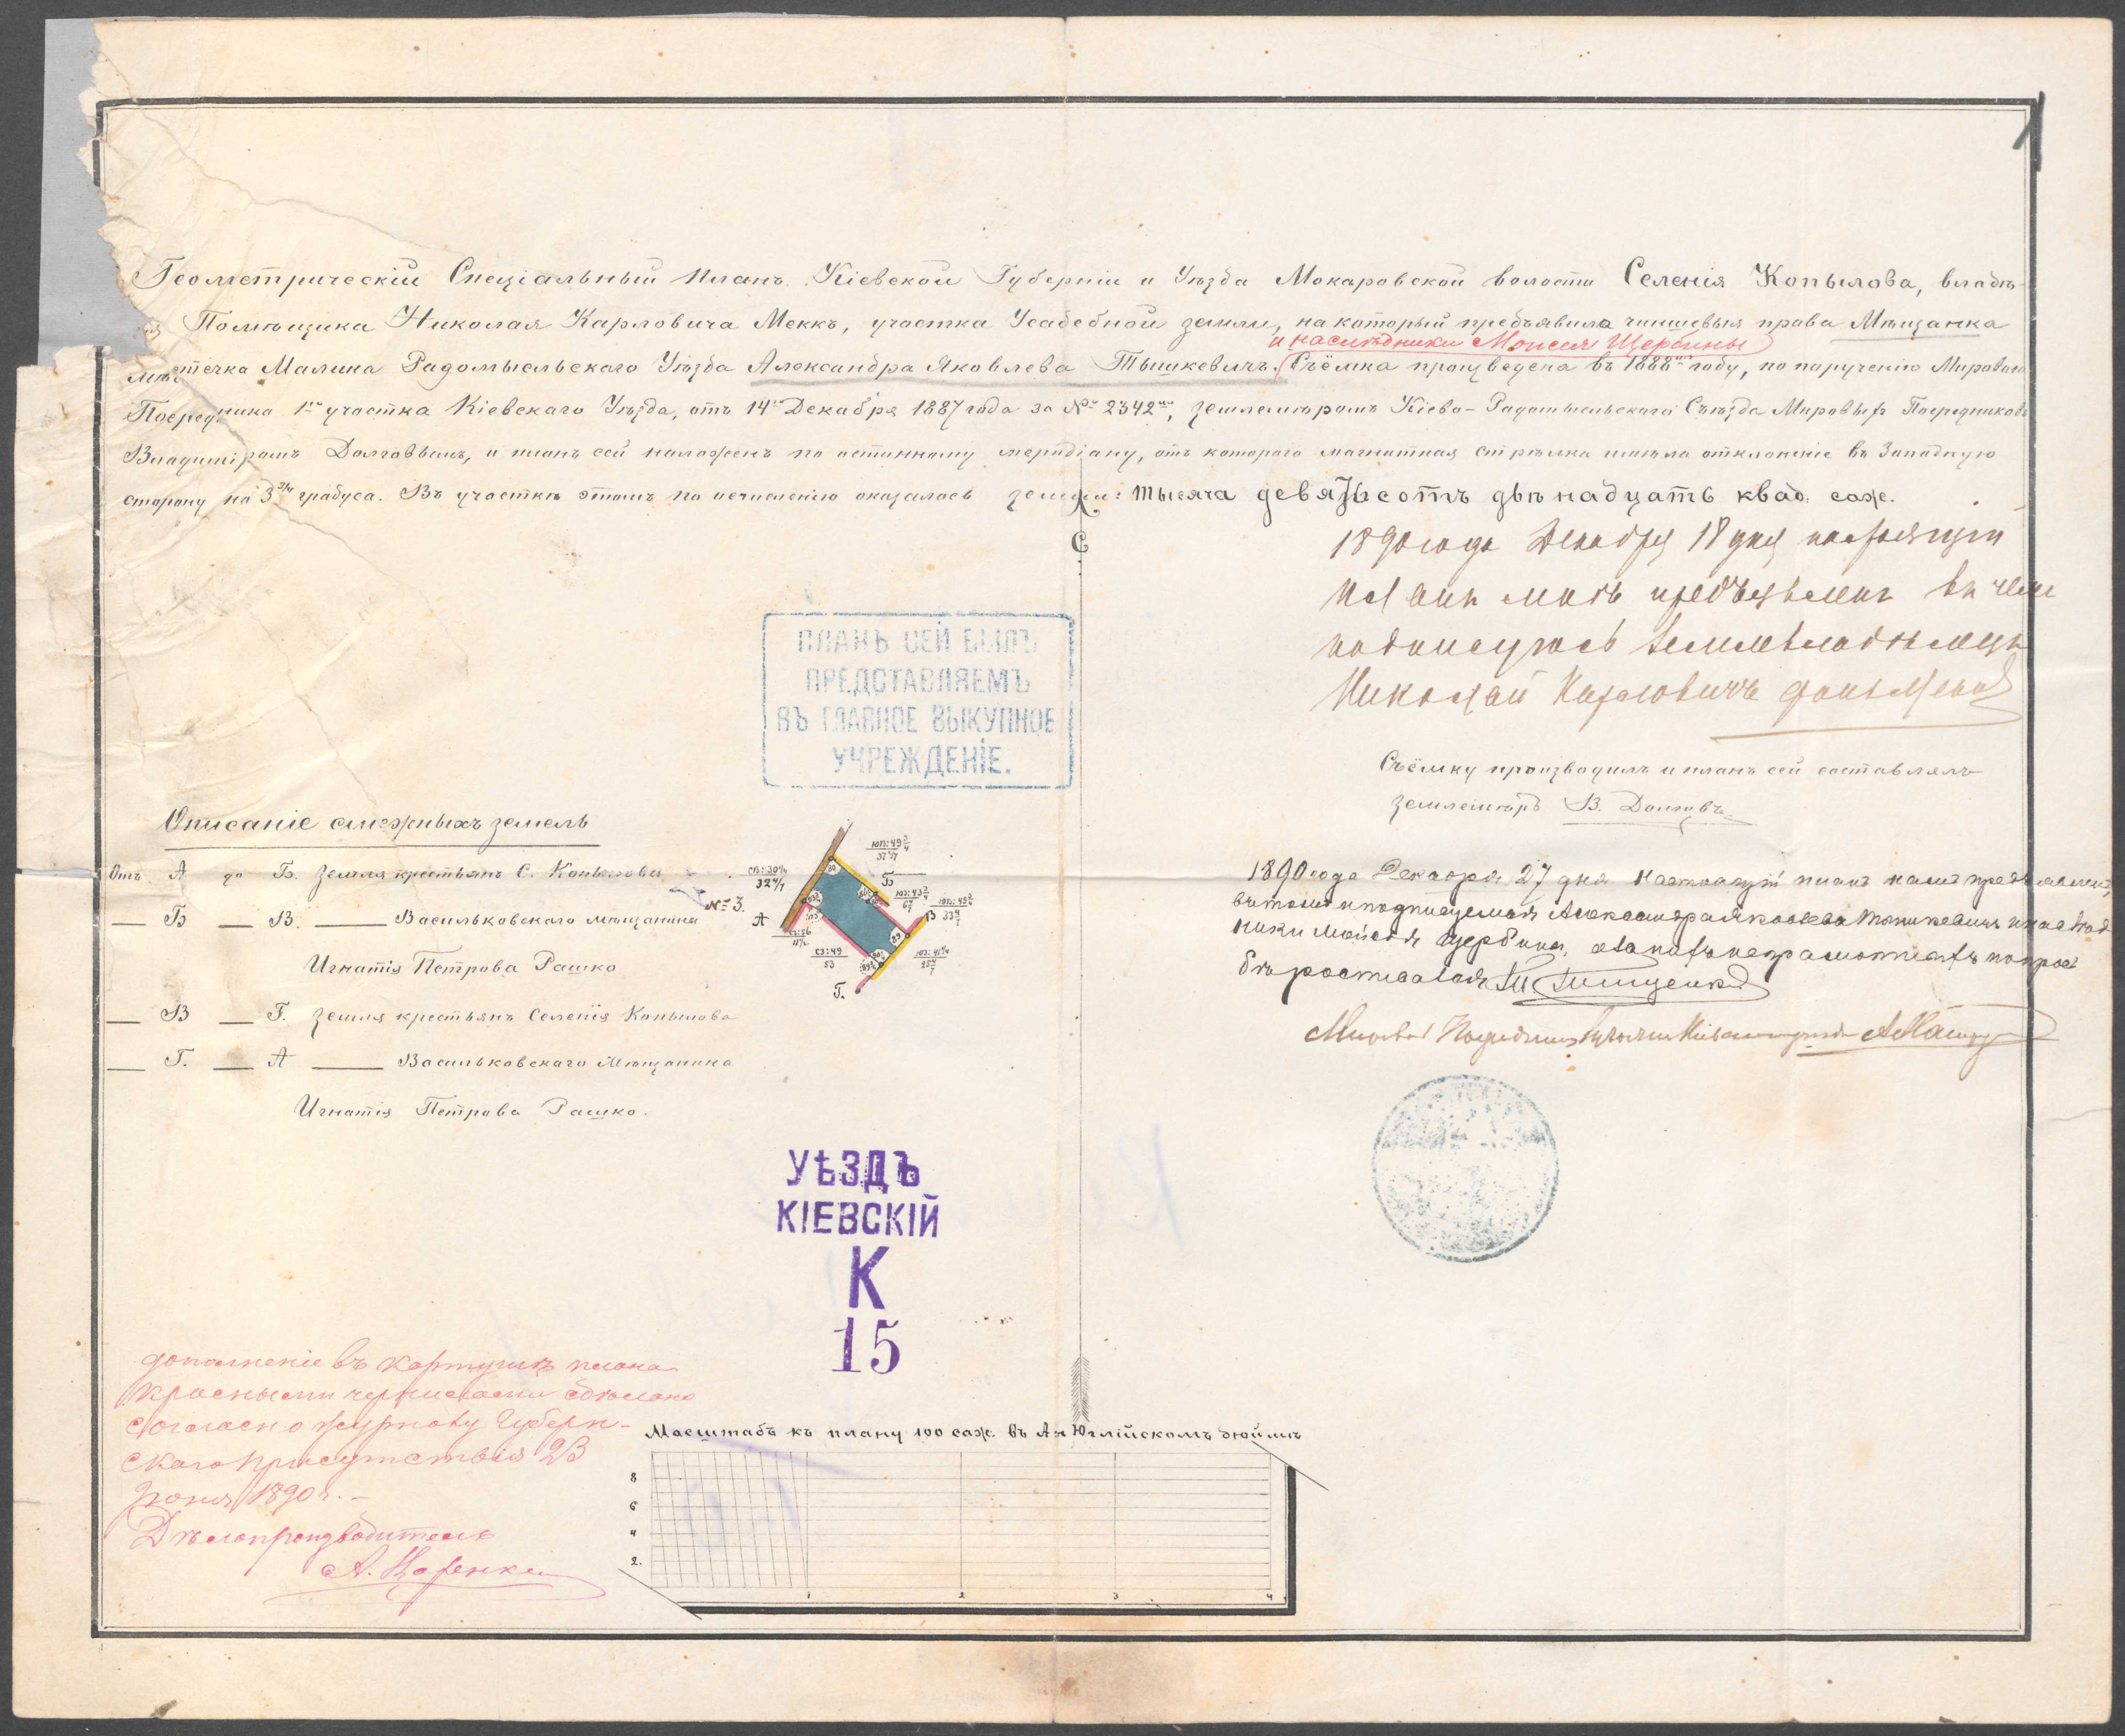 Геометрическій Спеціальный планъ Кіевской Губерніи и Уѣзда Макаровской волости Селенія Копылова, владѣ-
Помѣщика Николая Карловича Меккъ, участка Усадебной земли, на который предъявила чиншевыя права Мѣщанка
и наслѣдники Моисея Щербины
мѣстечка Малина Радомысльскаго Уѣзда Александра Яковлева Тышкевичъ. Съёмка произведена въ 1888 году, по порученію Мироваго
Посредника 1го участка Кіевскаго Уѣзда, отъ 14го Декабря 1887 года за № 2342, землемѣромъ Кіево-Радомысльскаго Съѣзда Мировыхъ Посредниковъ
Владиміромъ Долговымъ, и планъ сей наложенъ по истинному меридіану, отъ котораго магнитная стрѣлка имѣла отклоненіе въ Западную
сторону на 3 3/4 градуса. Въ участкѣ этомъ по исчисленію оказалось земли: тысяча девятьсотъ двѣнадцать квад. саж.
С
1890 года Декабря 18 дня настоящій
планъ мнѣ предъявленъ въ чемъ
подписуюсь землевладѣлецъ
Николай Карловичъ фонъ Меккъ
ПЛАНЪ СЕЙ БЫЛЪ
ПРЕДСТАВЛЯЕМЪ
ВЪ ГЛАВНОЕ ВЫКУПНОЕ
УЧРЕЖДЕНІЕ.
Съёмку производилъ и планъ сей составлялъ
землемѣръ В. Долговъ
Описаніе смежныхъ земель
Отъ А до Б. Земля крестьянъ С. Копылова
— Б — В. — Васильковскаго мѣщанина
Игнатія Петрова Рашко
— В — Г. Земля крестьянъ Селенія Копылова
— Г. — А — Васильковскаго Мѣщанина
Игнатія Петрова Рашко.
№ 3.
А
Б
В
Г.
1890 года Декабря 27 дня настоящій планъ намъ предъявленъ,
въ томъ и подписуемся Александра Яковлева Тышкевичъ и наслѣд
ники Моисея Щербины, а за нихъ неграмотныхъ по прось
бѣ росписался
Мировой Посредникъ
УѢЗДЪ
КІЕВСКІЙ
К
15
дополненіе въ картушѣ плана
красными чернилами сдѣлано
согласно журналу Губерн-
скаго присутствія 23
Іюня 1890 г.
Дѣлопроизводитель
Масштабъ къ плану 100 саж. въ Англійскомъ дюймѣ
Ю
8
6
4
2.
1 2 3 4